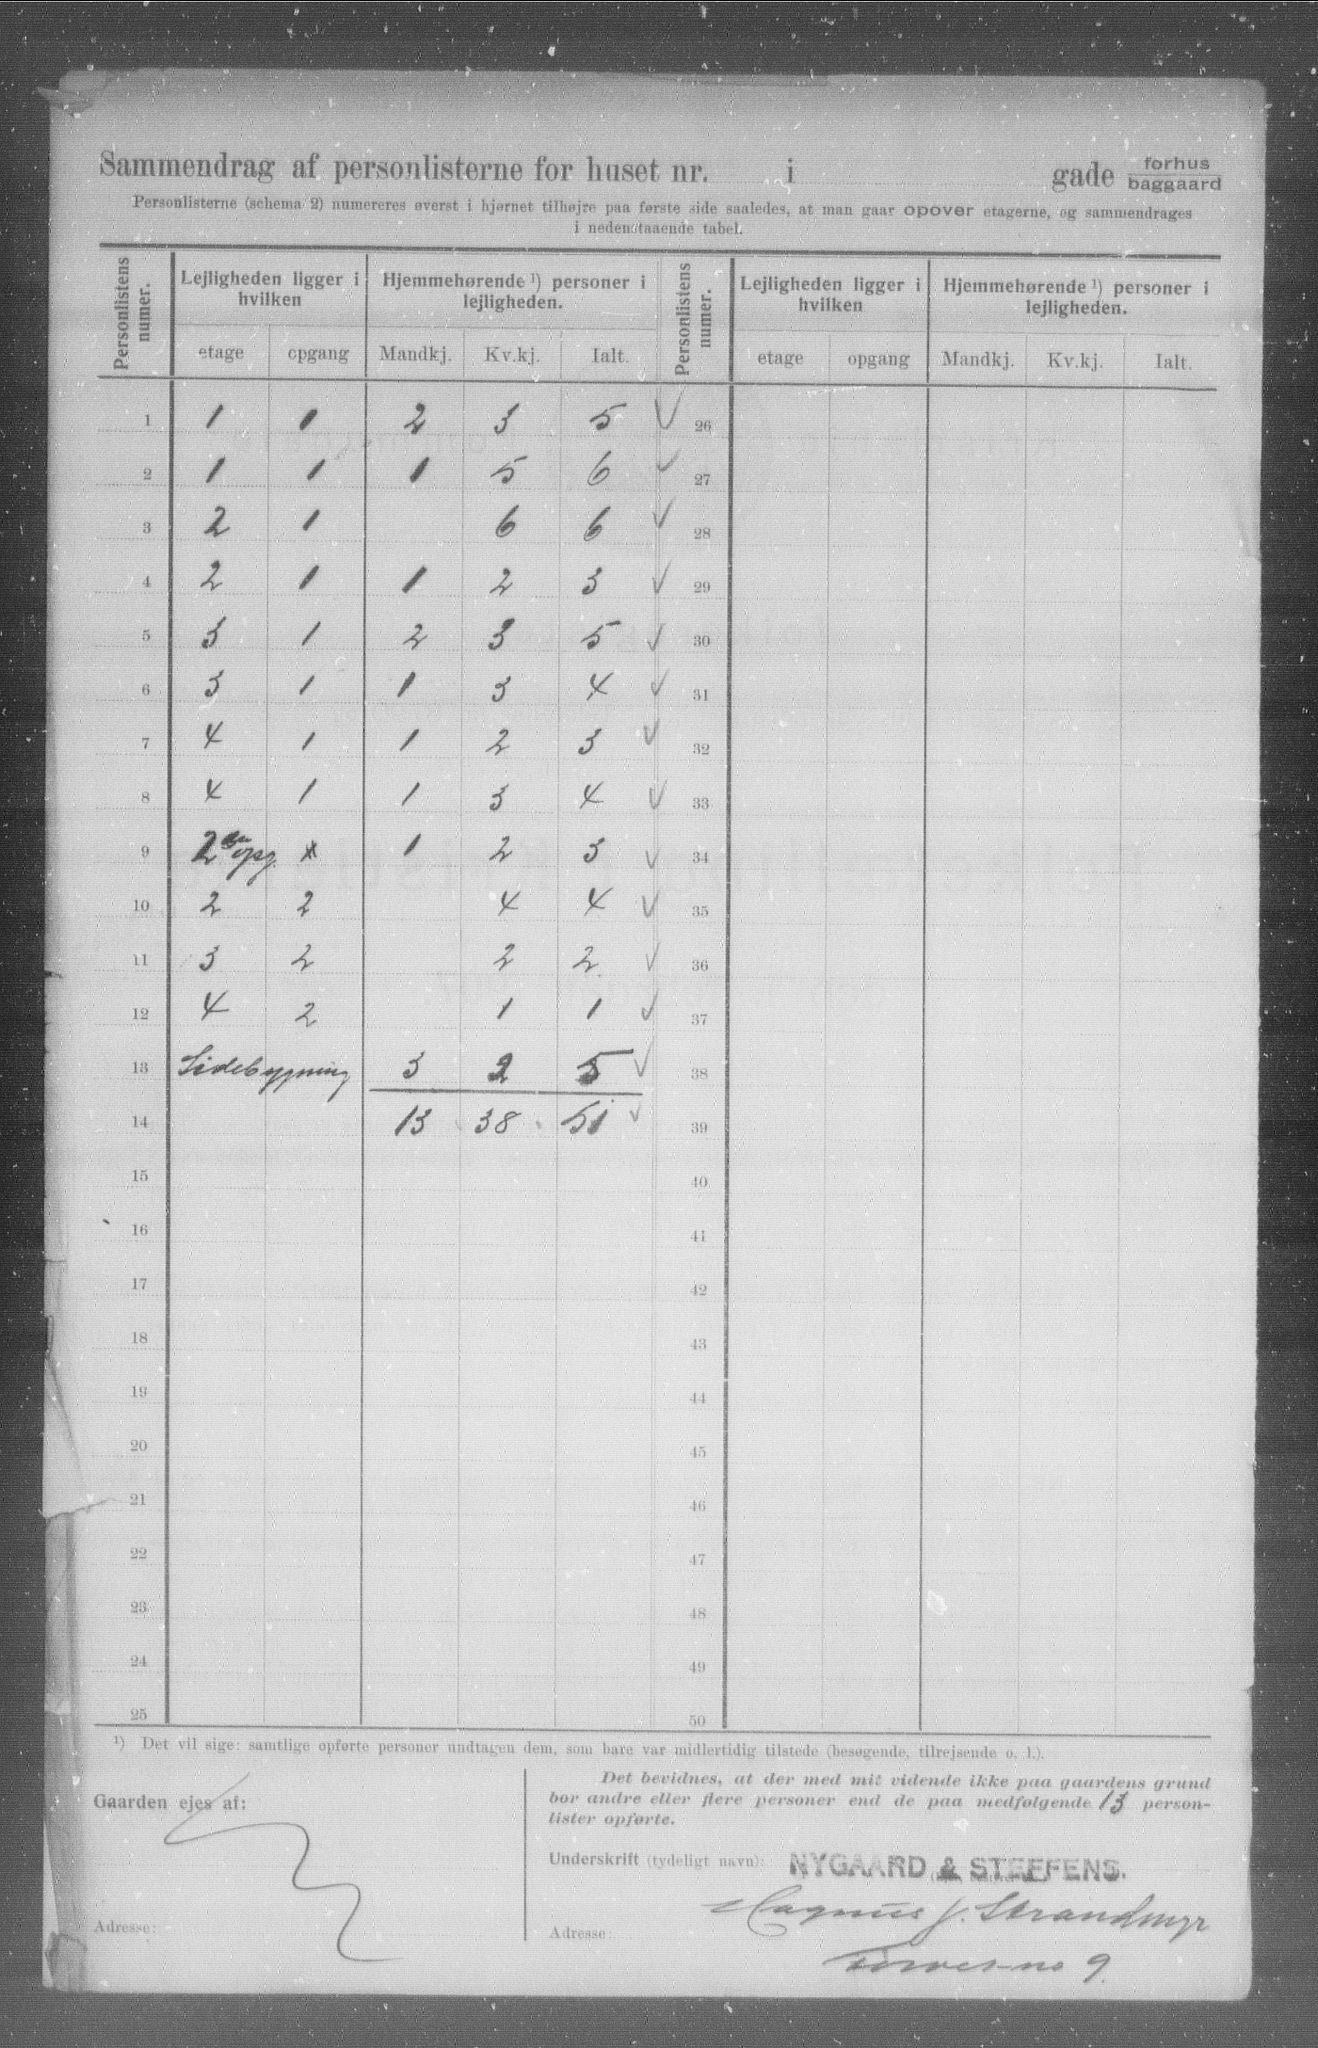 Sammendrag af personlisterne for huset nr. i gade forhus
baggaard
Personlisterne (schema 2) numereres øverst i hjørnet tilhøjre paa første side saaledes, at man gaar opover etagerne, og sammendrages
i nedenstaaende tabel.
Personlistens numer. Lejligheden ligger i hvilken Hjemmehørende ¹) personer i lejligheden. Personlistens numer. Lejligheden ligger i hvilken Hjemmehørende ¹) personer i lejligheden.
etage opgang Mandkj. Kv.kj. Ialt. etage opgang Mandkj. Kv.kj. Ialt.
1 1 1 2 3 5 ✓ 26
2 1 1 1 5 6 ✓ 27
3 2 1 6 6 ✓ 28
4 2 1 1 2 3 ✓ 29
5 3 1 2 3 5 ✓ 30
6 3 1 1 3 4 ✓ 31
7 4 1 1 2 3 ✓ 32
8 4 1 1 3 4 ✓ 33
9 2 opg 1 2 3 ✓ 34
10 2 2 4 4 ✓ 35
11 3 2 2 2 ✓ 36
12 4 2 1 1 ✓ 37
13 Sidebygning 3 2 5 ✓ 38
14 13 38 51 ✓ 39
15 40
16 41
17 42
18 43
19 44
20 45
21 46
22 47
23 48
24 49
25 50
¹) Det vil sige: samtlige opførte personer undtagen dem, som bare var midlertidig tilstede (besøgende, tilrejsende o. l.).
Gaarden ejes af:
Adresse:
Det bevidnes, at der med mit vidende ikke paa gaardens grund
bor andre eller flere personer end de paa medfølgende 13 person-
lister opførte.
Underskrift (tydeligt navn): NYGAARD & STEFFENS.
Magnus J. Strandmyr
Adresse:
9.